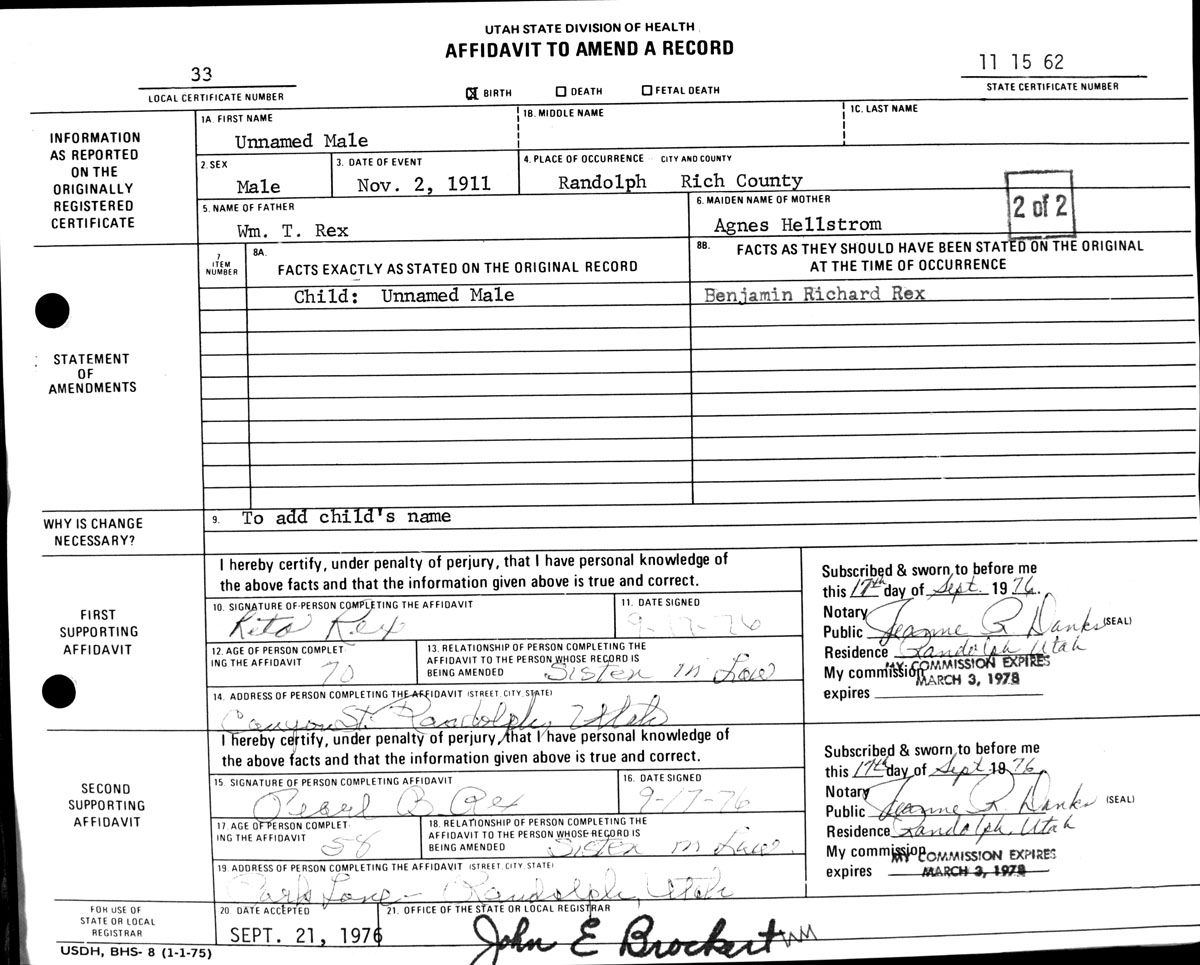 UTAH STATE DIVISION OF HEALTH
AFFIDAVIT TO AMEND A RECORD
33
LOCAL CERTIFICATE NUMBER
BIRTH DEATH FETAL DEATH
11 15 62
STATE CERTIFICATE NUMBER
INFORMATION
AS REPORTED
ON THE
ORIGINALLY
REGISTERED
CERTIFICATE
1A. FIRST NAME
Unnamed Male
1B. MIDDLE NAME
1C. LAST NAME
2. SEX
Male
3. DATE OF EVENT
Nov. 2, 1911
4. PLACE OF OCCURRENCE CITY AND COUNTY
Randolph Rich County
5. NAME OF FATHER
Wm. T. Rex
6. MAIDEN NAME OF MOTHER
Agnes Hellstrom
2 of 2
STATEMENT
OF
AMENDMENTS
7
ITEM
NUMBER
8A.
FACTS EXACTLY AS STATED ON THE ORIGINAL RECORD
8B. FACTS AS THEY SHOULD HAVE BEEN STATED ON THE ORIGINAL
AT THE TIME OF OCCURRENCE
Child: Unnamed Male
Benjamin Richard Rex
WHY IS CHANGE
NECESSARY?
9. To add child's name
FIRST
SUPPORTING
AFFIDAVIT
I hereby certify, under penalty of perjury, that I have personal knowledge of
the above facts and that the information given above is true and correct.
10. SIGNATURE OF PERSON COMPLETING THE AFFIDAVIT
Rita Rex
11. DATE SIGNED
9-17-76
12. AGE OF PERSON COMPLET
ING THE AFFIDAVIT
70
13. RELATIONSHIP OF PERSON COMPLETING THE
AFFIDAVIT TO THE PERSON WHOSE RECORD IS
BEING AMENDED Sister in Law
14. ADDRESS OF PERSON COMPLETING THE AFFIDAVIT (STREET, CITY, STATE)
Canyon St. Randolph, Utah
Subscribed & sworn to before me
this 17th day of Sept. 1976.
Notary
Public Jeanne R Danks (SEAL)
Residence Randolph Utah
My commission MY COMMISSION EXPIRES
expires MARCH 3, 1978
SECOND
SUPPORTING
AFFIDAVIT
I hereby certify, under penalty of perjury, that I have personal knowledge of
the above facts and that the information given above is true and correct.
15. SIGNATURE OF PERSON COMPLETING AFFIDAVIT
Pearl B Rex
16. DATE SIGNED
9-17-76
17. AGE OF PERSON COMPLET
ING THE AFFIDAVIT
58
18. RELATIONSHIP OF PERSON COMPLETING THE
AFFIDAVIT TO THE PERSON WHOSE RECORD IS
BEING AMENDED Sister in Law.
19. ADDRESS OF PERSON COMPLETING THE AFFIDAVIT (STREET, CITY, STATE)
Park Lane - Randolph, Utah
Subscribed & sworn to before me
this 17th day of Sept 1976.
Notary
Public Jeanne R. Danks (SEAL)
Residence Randolph, Utah
My commission MY COMMISSION EXPIRES
expires MARCH 3, 1978
FOR USE OF
STATE OR LOCAL
REGISTRAR
20. DATE ACCEPTED
SEPT. 21, 1976
21. OFFICE OF THE STATE OR LOCAL REGISTRAR
John E Brockert
USDH, BHS- 8 (1-1-75)